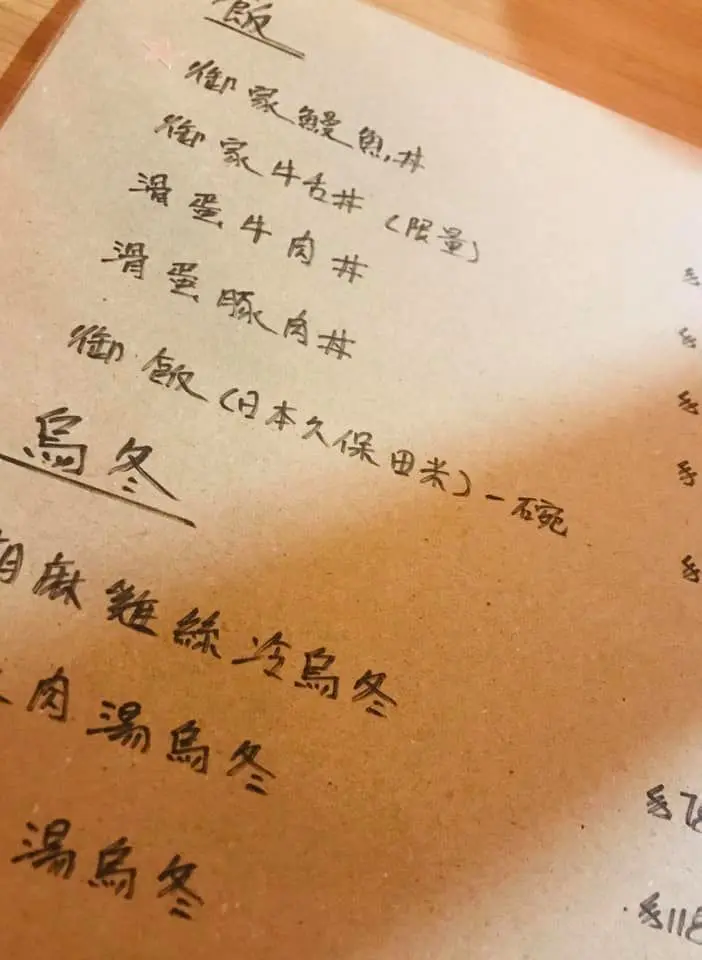 飯
御家鰻魚丼
御家牛舌丼 (限量)
滑蛋牛肉丼
滑蛋豚肉丼
御飯 (日本久保田米) 一碗
烏冬
胡麻雞絲冷烏冬
肉湯烏冬
湯烏冬
$78
$118